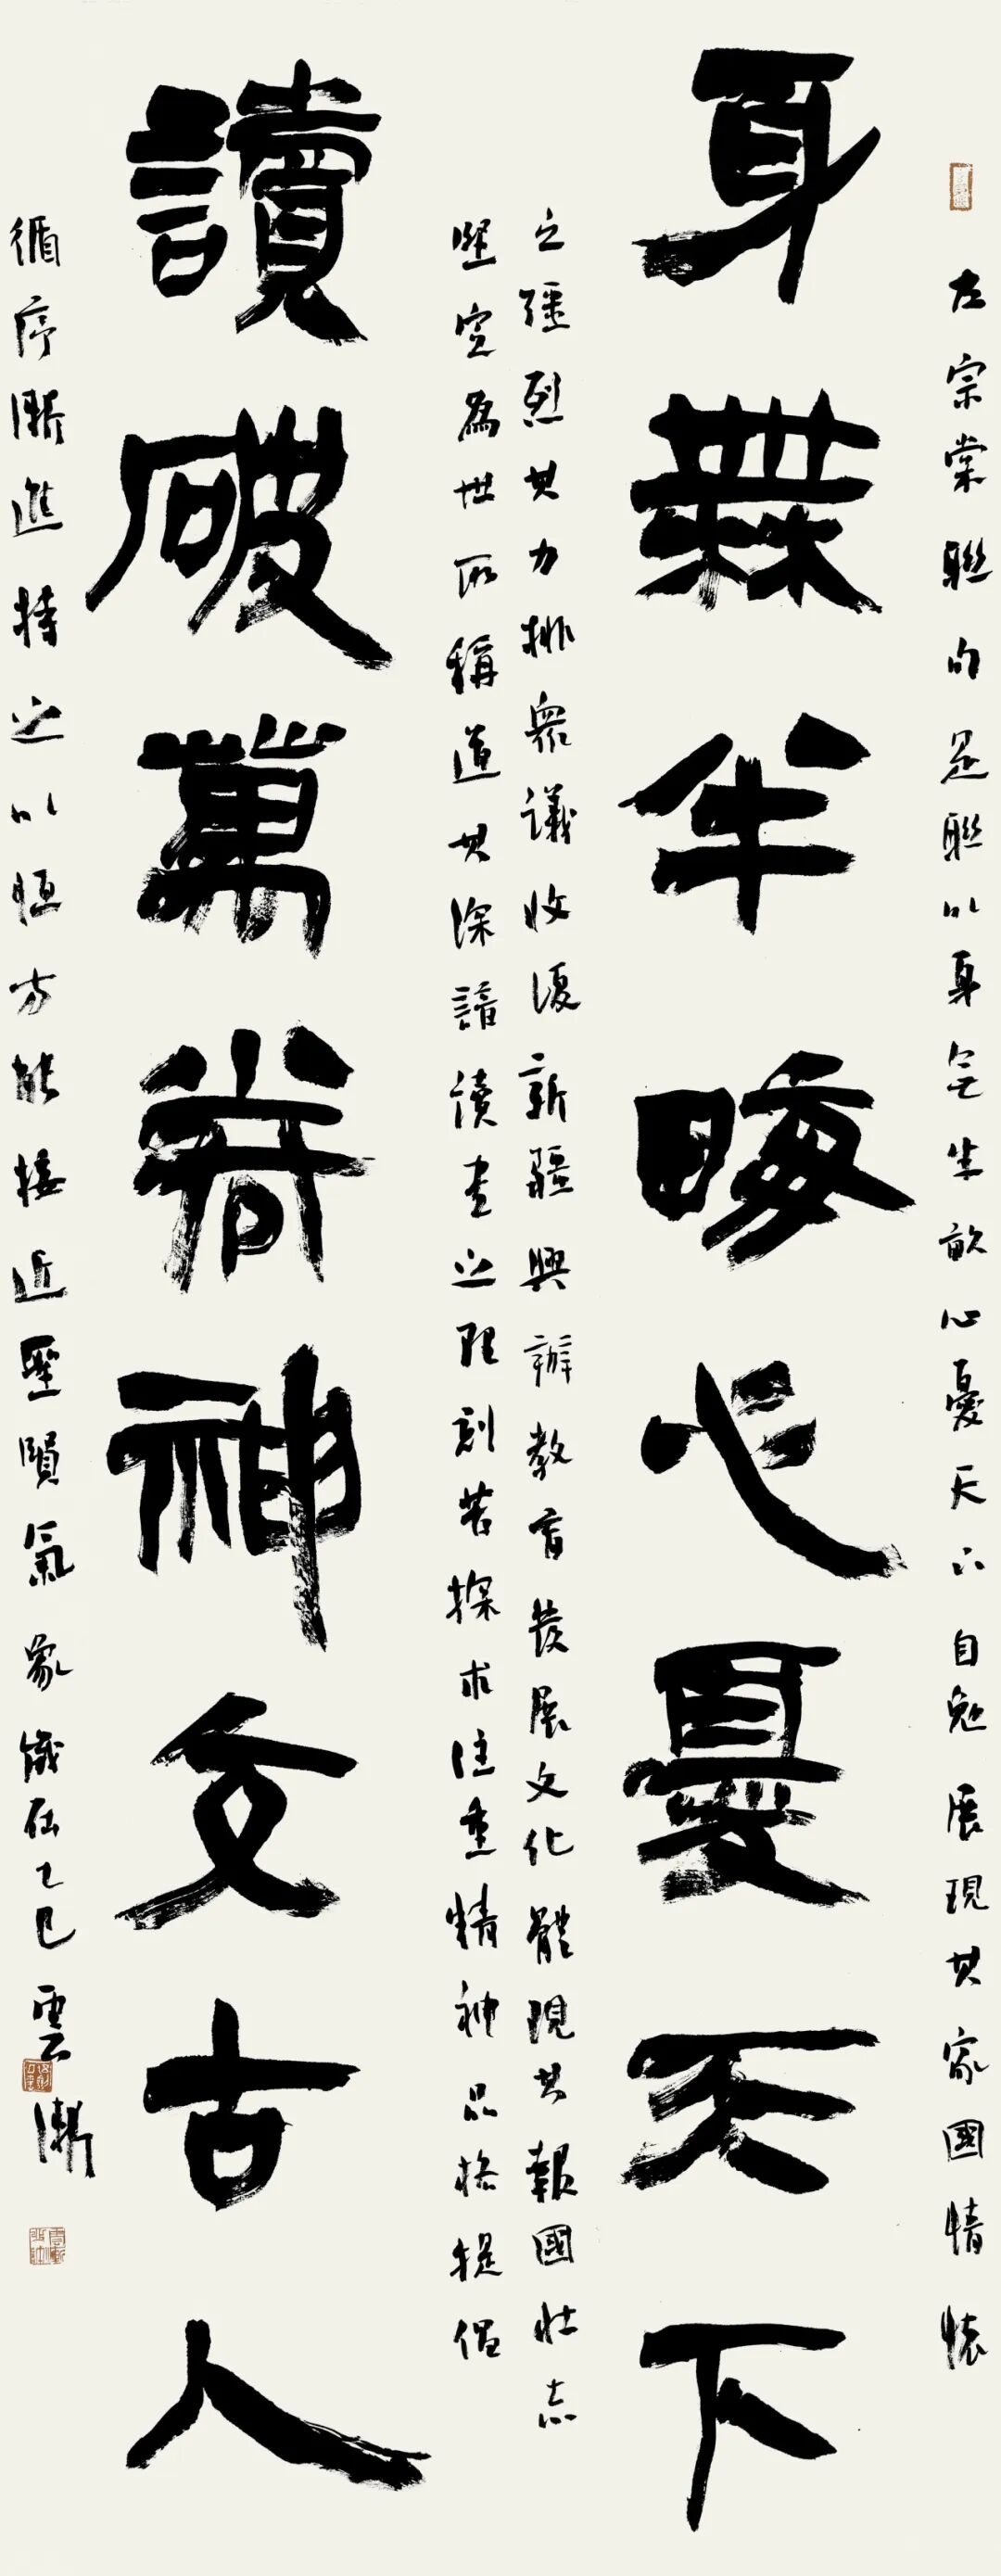 左宗棠聯句是聯以身無半畝心憂天下自勉展現其家國情懷
身無半畝心憂天下
之彊烈其力排衆議收復新疆興辦教育發展文化體現其報國壯志
堅定為世所稱道其深諳讀書之理刻苦探求注重精神品格提倡
讀破萬卷神交古人
循序漸進持之以恒方能接近聖賢氣象歲在乙巳雲漸